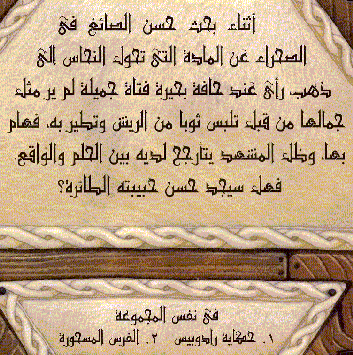 أثناء بحث حسن الصائغ في
الصحراء عن المادة التي تحول النحاس إلى
ذهب، رأى عند حافة بحيرة فتاة جميلة لم ير مثل
جمالها من قبل تلبس ثوبا من الريش وتطير به. فهام
بها، وظل المشهد يتارجح لديه بين الحلم والواقع.
فهل سيجد حسن حبيبته الطائرة؟
في نفس المجموعة
١. حكاية رادوبيس ٢. الفرس المسحورة